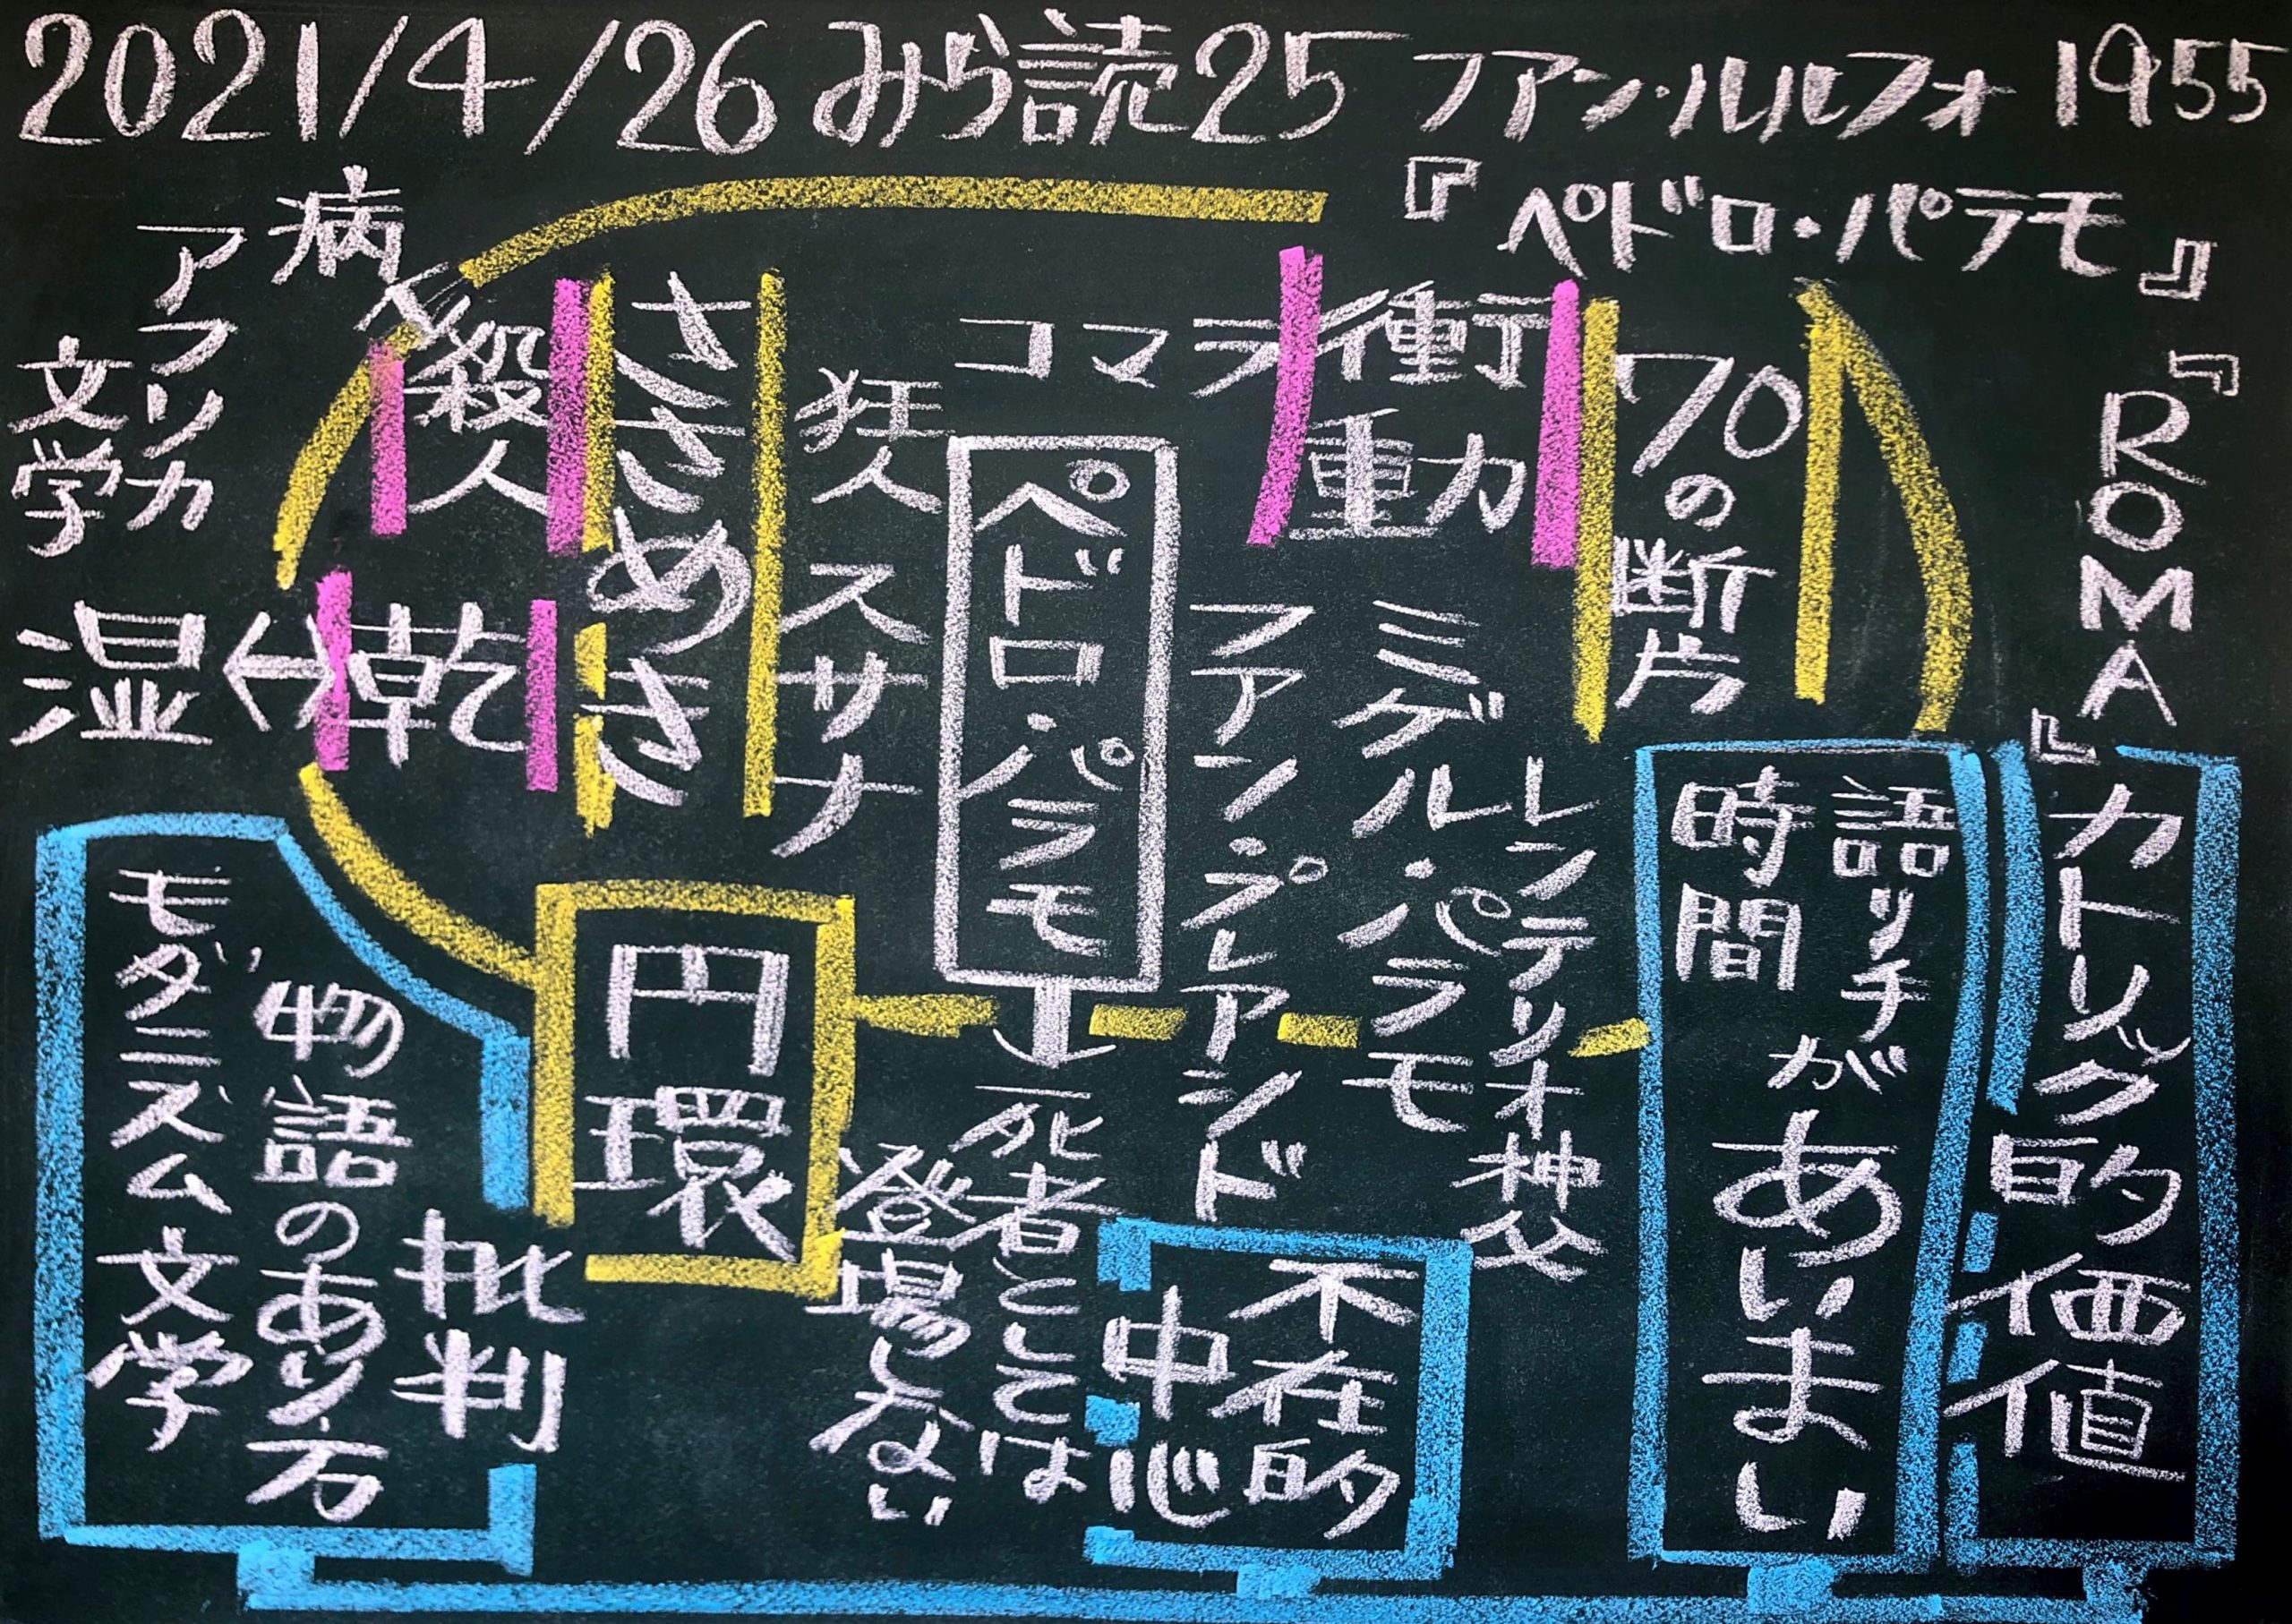 2021/4/26 みら読25 フアン・ルルフォ 1955
『ペドロ・パラモ』
『ROMA』
カトリック的
価値
70の断片
語り手
時間
があいまい
衝動
重力
コマラ
レンテリオ神父
ミゲル・パラモ
フアン・プレアシド
不在的
中心
ペドロ・パラモ
死者としては
登場しない
狂人 スサナ
ささめき
円環
殺人
病
乾
湿
アフリカ
文学
批判
物語のあり方
モダニズム文学